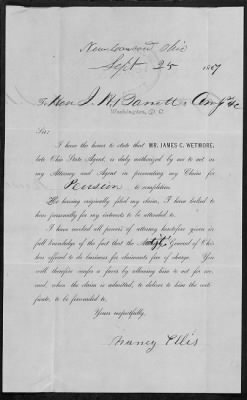 Ohio
Sept 25 1867
To Hon J. H. Barrett
Washington, D. C.
Sir:
I have the honor to state that MR. JAMES C. WETMORE,
late Ohio State Agent, is duly authorized by me to act as
my Attorney and Agent in prosecuting my Claim for
Pension to completion.
He having originally filed my claim, I have looked to
him personally for my interests to be attended to.
I have revoked all powers of attorney heretofore given in
full knowledge of the fact that the Adjt. General of Ohio
has offered to do business for claimants free of charge. You
will therefore confer a favor by allowing him to act for me,
and, when the claim is admitted, to deliver to him the certi-
ficate, to be forwarded to,
Yours respectfully,
Nancy Ellis